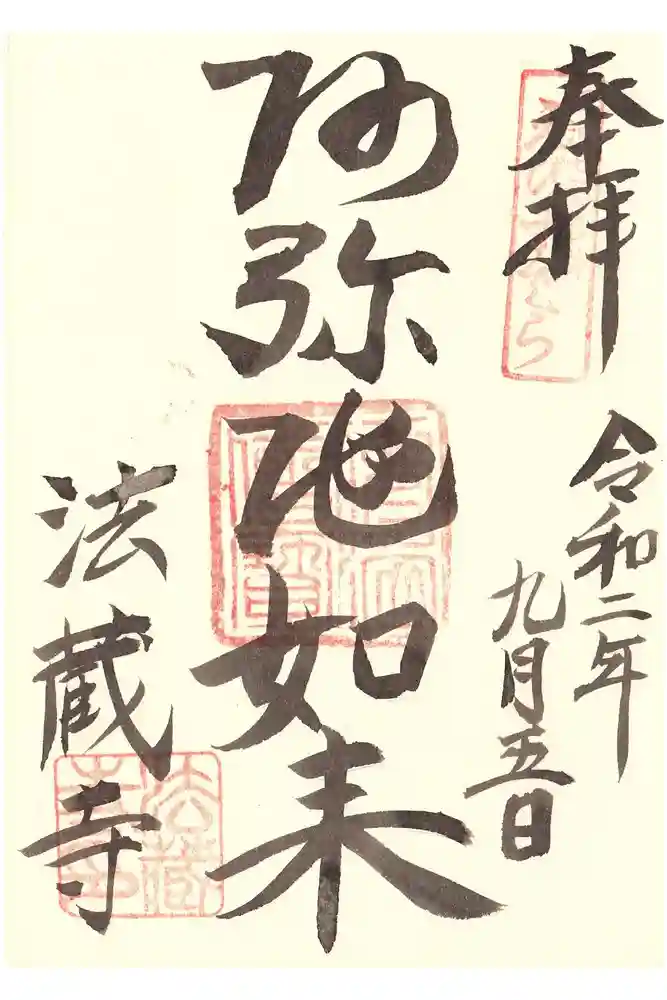 奉拝
令和二年
九月五日
阿弥陀如来
法蔵寺
法蔵